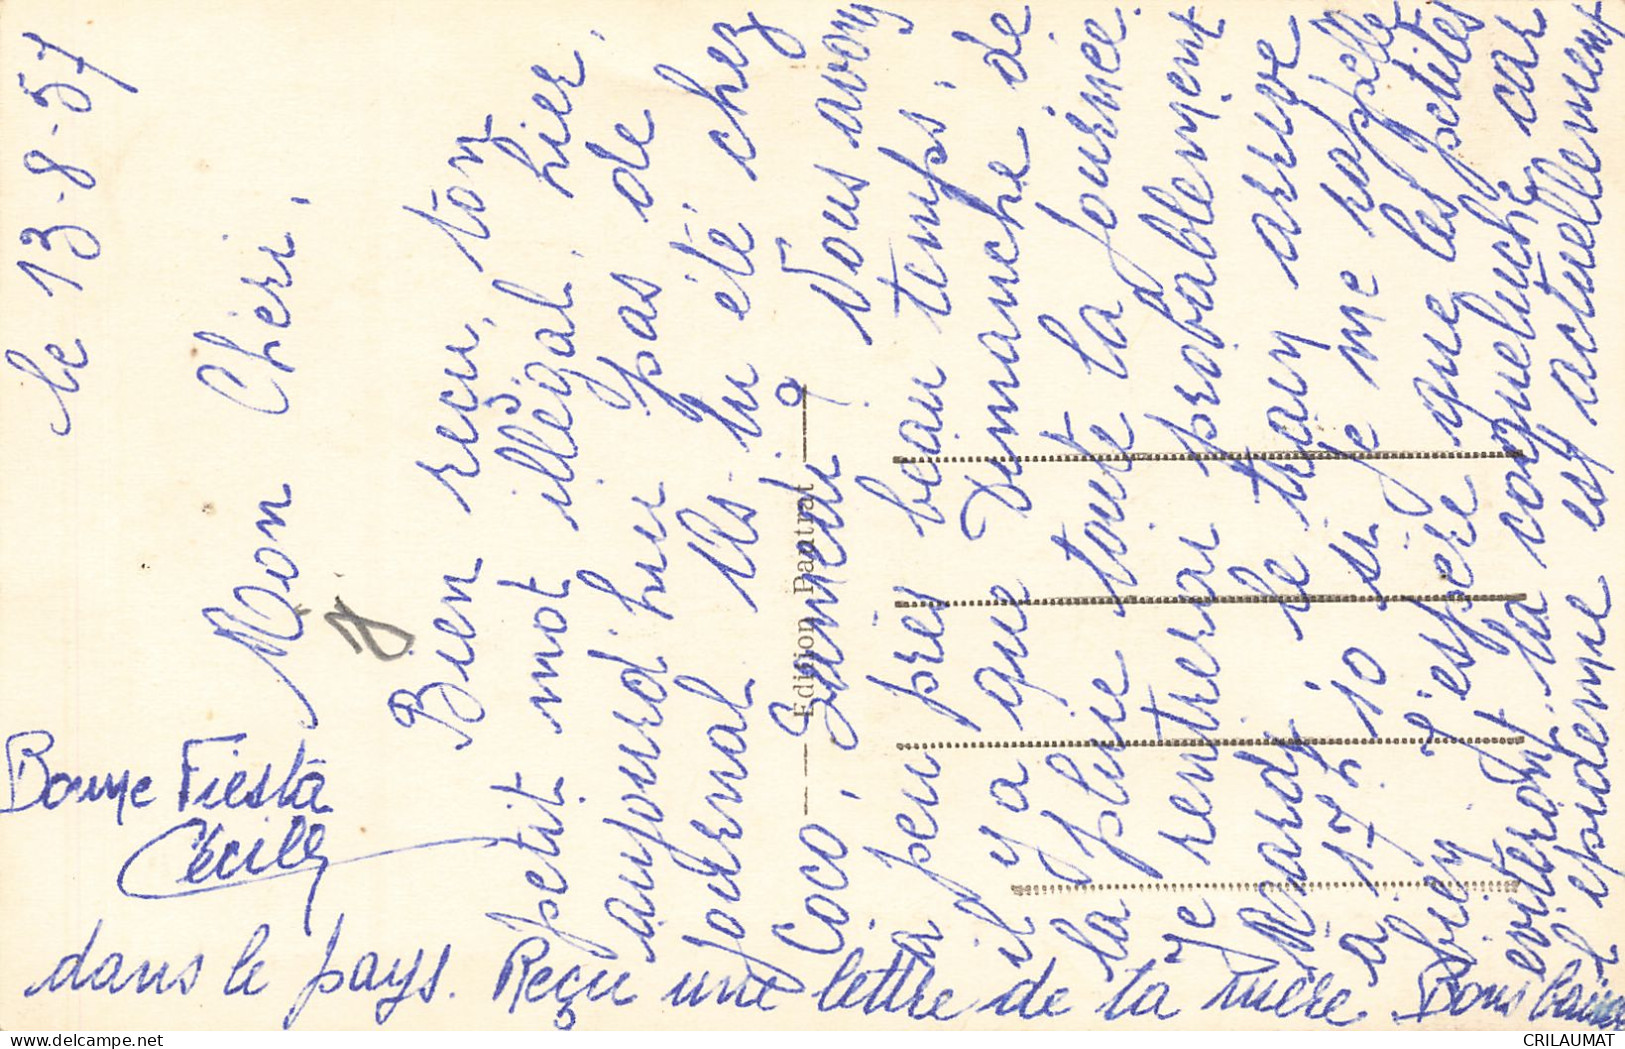 le 13-8-57
Mon Chéri,
Bien reçu, ton
petit mot illégal, hier,
aujourd'hui pas de
journal. Ils ont été chez
Coco, Samedi ? Nous avons
à peu près beau temps, de
il y a que Dimanche de
la pluie toute la journée.
Je rentrerai probablement
Mardi le train arrive
à 17 h 10 si je me rappelle
bien. J'espère que les petites
éviteront la coqueluche car
l'épidémie est actuellement
dans le pays. Reçu une lettre de ta mère. Bons baisers
Bonne Fiesta
Cécile
Edition Dautrat
CRILAUMAT